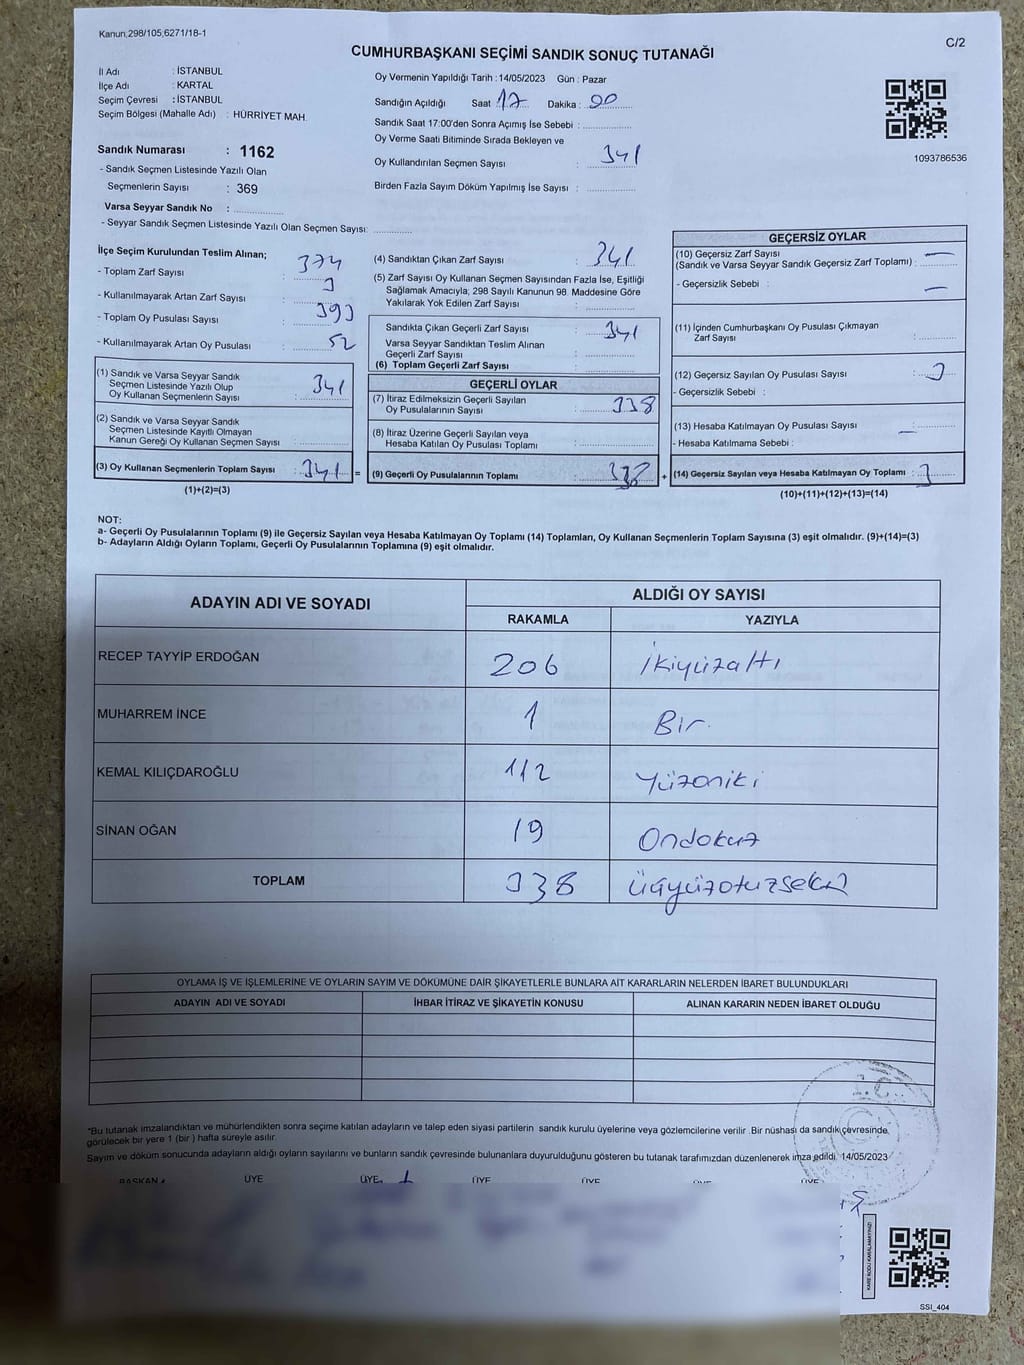 Kanun,298/105,6271/18-1
C/2
CUMHURBAŞKANI SEÇİMİ SANDIK SONUÇ TUTANAĞI
İl Adı : İSTANBUL
İlçe Adı : KARTAL
Seçim Çevresi : İSTANBUL
Seçim Bölgesi (Mahalle Adı) : HÜRRİYET MAH.
Sandık Numarası : 1162
- Sandık Seçmen Listesinde Yazılı Olan
Seçmenlerin Sayısı : 369
Varsa Seyyar Sandık No :
- Seyyar Sandık Seçmen Listesinde Yazılı Olan Seçmen Sayısı:
Oy Vermenin Yapıldığı Tarih : 14/05/2023 Gün : Pazar
Sandığın Açıldığı Saat 17 Dakika : 00
Sandık Saat 17:00'den Sonra Açımış İse Sebebi :
Oy Verme Saati Bitiminde Sırada Bekleyen ve
Oy Kullandırılan Seçmen Sayısı : 341
Birden Fazla Sayım Döküm Yapılmış İse Sayısı :
1093786536
İlçe Seçim Kurulundan Teslim Alınan;
- Toplam Zarf Sayısı : 374
- Kullanılmayarak Artan Zarf Sayısı :
- Toplam Oy Pusulası Sayısı : 393
- Kullanılmayarak Artan Oy Pusulası : 52
(1) Sandık ve Varsa Seyyar Sandık
Seçmen Listesinde Yazılı Olup
Oy Kullanan Seçmenlerin Sayısı : 341
(2) Sandık ve Varsa Seyyar Sandık
Seçmen Listesinde Kayıtlı Olmayan
Kanun Gereği Oy Kullanan Seçmen Sayısı :
(3) Oy Kullanan Seçmenlerin Toplam Sayısı : 341
(1)+(2)=(3)
(4) Sandıktan Çıkan Zarf Sayısı : 341
(5) Zarf Sayısı Oy Kullanan Seçmen Sayısından Fazla İse, Eşitliği
Sağlamak Amacıyla; 298 Sayılı Kanunun 98. Maddesine Göre
Yakılarak Yok Edilen Zarf Sayısı :
Sandıkta Çıkan Geçerli Zarf Sayısı : 341
Varsa Seyyar Sandıktan Teslim Alınan
Geçerli Zarf Sayısı :
(6) Toplam Geçerli Zarf Sayısı :
GEÇERLİ OYLAR
(7) İtiraz Edilmeksizin Geçerli Sayılan
Oy Pusulalarının Sayısı : 338
(8) İtiraz Üzerine Geçerli Sayılan veya
Hesaba Katılan Oy Pusulası Toplamı :
= (9) Geçerli Oy Pusulalarının Toplamı : 338 +
GEÇERSİZ OYLAR
(10) Geçersiz Zarf Sayısı —
(Sandık ve Varsa Seyyar Sandık Geçersiz Zarf Toplamı) :
- Geçersizlik Sebebi : —
(11) İçinden Cumhurbaşkanı Oy Pusulası Çıkmayan
Zarf Sayısı :
(12) Geçersiz Sayılan Oy Pusulası Sayısı : 3
- Geçersizlik Sebebi :
(13) Hesaba Katılmayan Oy Pusulası Sayısı : —
- Hesaba Katılmama Sebebi :
(14) Geçersiz Sayılan veya Hesaba Katılmayan Oy Toplamı : 3
(10)+(11)+(12)+(13)=(14)
NOT:
a- Geçerli Oy Pusulalarının Toplamı (9) ile Geçersiz Sayılan veya Hesaba Katılmayan Oy Toplamı (14) Toplamları, Oy Kullanan Seçmenlerin Toplam Sayısına (3) eşit olmalıdır. (9)+(14)=(3)
b- Adayların Aldığı Oyların Toplamı, Geçerli Oy Pusulalarının Toplamına (9) eşit olmalıdır.
ADAYIN ADI VE SOYADI ALDIĞI OY SAYISI
RAKAMLA YAZIYLA
RECEP TAYYİP ERDOĞAN 206 İkiyüzaltı
MUHARREM İNCE 1 Bir
KEMAL KILIÇDAROĞLU 112 Yüzoniki
SİNAN OĞAN 19 Ondokuz
TOPLAM 338 Üçyüzotuzsekiz
OYLAMA İŞ VE İŞLEMLERİNE VE OYLARIN SAYIM VE DÖKÜMÜNE DAİR ŞİKAYETLERLE BUNLARA AİT KARARLARIN NELERDEN İBARET BULUNDUKLARI
ADAYIN ADI VE SOYADI İHBAR İTİRAZ VE ŞİKAYETİN KONUSU ALINAN KARARIN NEDEN İBARET OLDUĞU
*Bu tutanak imzalandıktan ve mühürlendikten sonra seçime katılan adayların ve talep eden siyasi partilerin sandık kurulu üyelerine veya gözlemcilerine verilir .Bir nüshası da sandık çevresinde
görülecek bir yere 1 (bir ) hafta süreyle asılır.
Sayım ve döküm sonucunda adayların aldığı oyların sayılarını ve bunların sandık çevresinde bulunanlara duyurulduğunu gösteren bu tutanak tarafımızdan düzenlenerek imza edildi. 14/05/2023
T.C.
BAŞKAN ÜYE ÜYE ÜYE ÜYE ÜYE ÜYE
KARE KODU KARALAMAYINIZ!
SSI_404